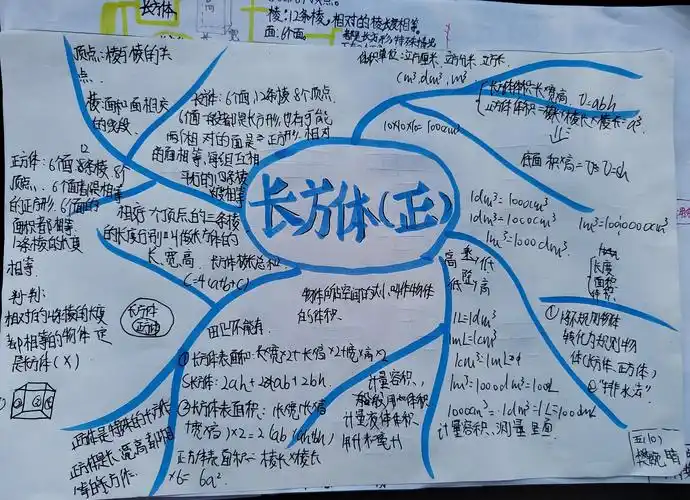 长方体
棱:12条棱,相对的棱长度相等。
面:6个面。
顶点:棱与棱的交点。
棱:面和面相交的线段
长方体:6个面,12条棱,8个顶点。
6个面一般都是长方形,也有可能
两个相对的面是正方形,相对
的面相等,每组互相
平行的四条棱
长度相等
正方体:6个面,12条棱,8个
顶点。6个面都是相等
的正方形。6个面的
面积都相等
12条棱的长度
相等
相交于一个顶点的三条棱
的长度分别叫做长方体的
长、宽、高。长方体棱长总和
C=4(a+b+c)
判判:
相对的4条棱的长度
都相等的物体一定
是长方体(×)
长方体
正方体
正方体是特殊的长方体
正方体是长、宽、高都相
等的长方体。
长方体(正)
体积单位:立方厘米,立方分米,立方米.
cm³,dm³,m³
10×10×10=1000cm³
长方体体积=长×宽×高 V=abh
正方体体积=棱长×棱长×棱长=a³
底面积×高=V V=Sh
1dm³=1000cm³
1dm³=1000cm³
1m³=1000dm³
1m³=1000000cm³
高→低
低→高
长度
面积
体积
①将不规则物
转化为规则物
体(长方体、正方体)
②"排水法"
物体所占空间的大小,叫作物体
的体积
1L=1dm³
1mL=1cm³
1m³=1000dm³=1000L
1000cm³=1dm³=1L=1000mL
计量容积、测量里面
计量容积,
一般就用体积
计量液体体积
用升和毫升
①长方体表面积:长×宽×2+长×高×2+宽×高×2
S长方体:2ah+2ab+2bh.
②长方体表面积:(长×宽+长×高
+宽×高)×2=2(ab+ah+bh)
正方体表面积=棱长×棱长
×6=6a²
五(10)